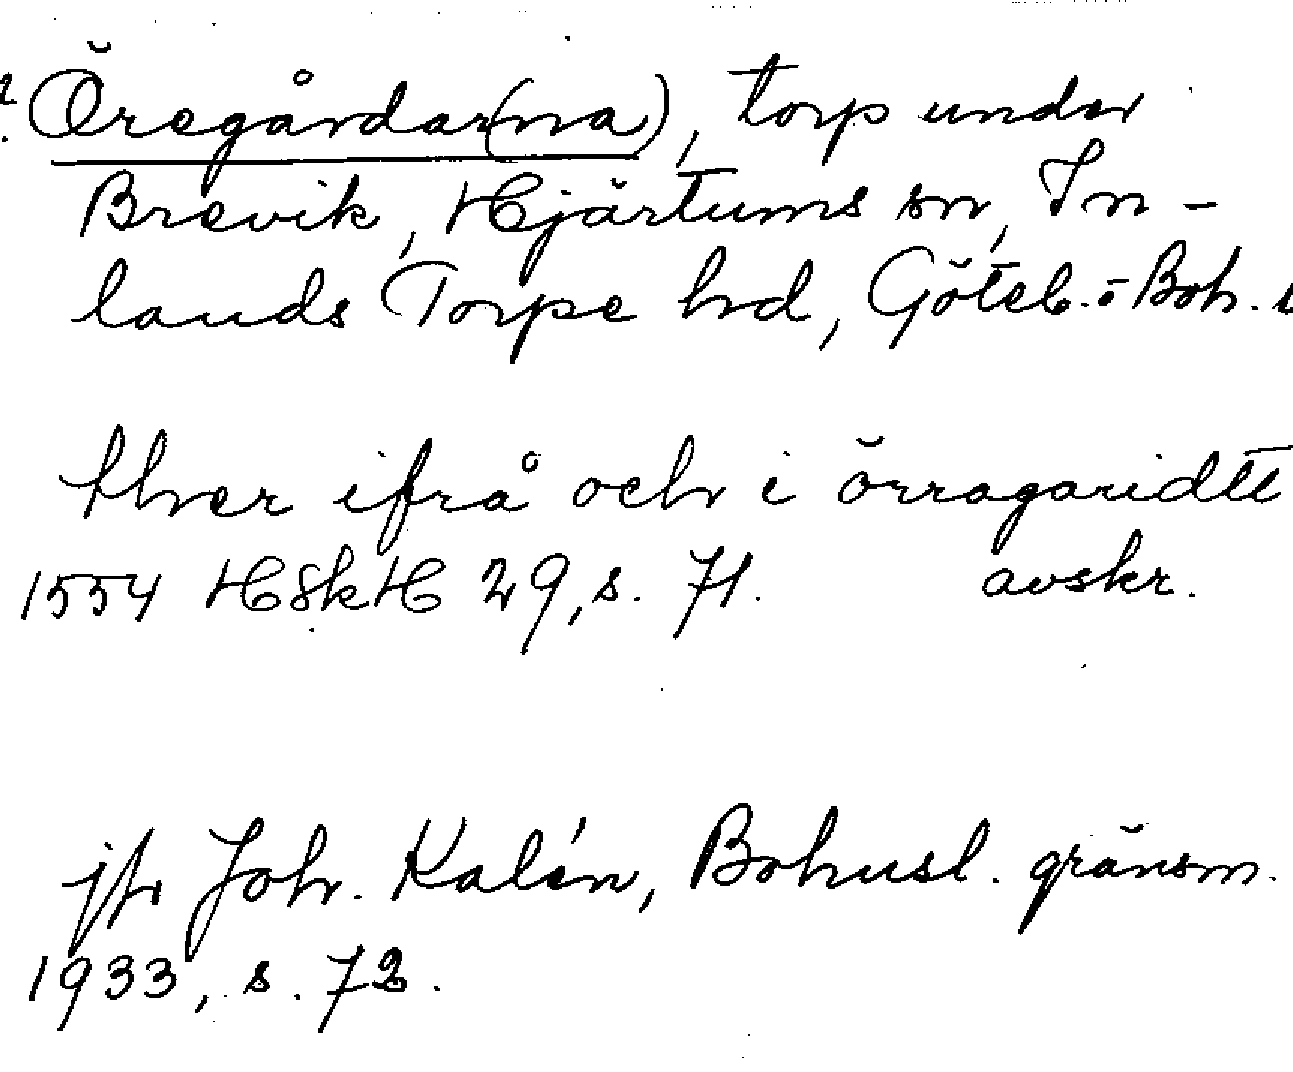 Öregårdar(na), torp under
Brevik, Hjärtums sn, In-
lands Torpe hd, Göteb. o Boh. l
ther ifrå och i örragaridtt
1554 HSkH 29, s. 71. avskr.
jfr Joh. Kalén, Bohusl. gränsm.
1933, s. 72.